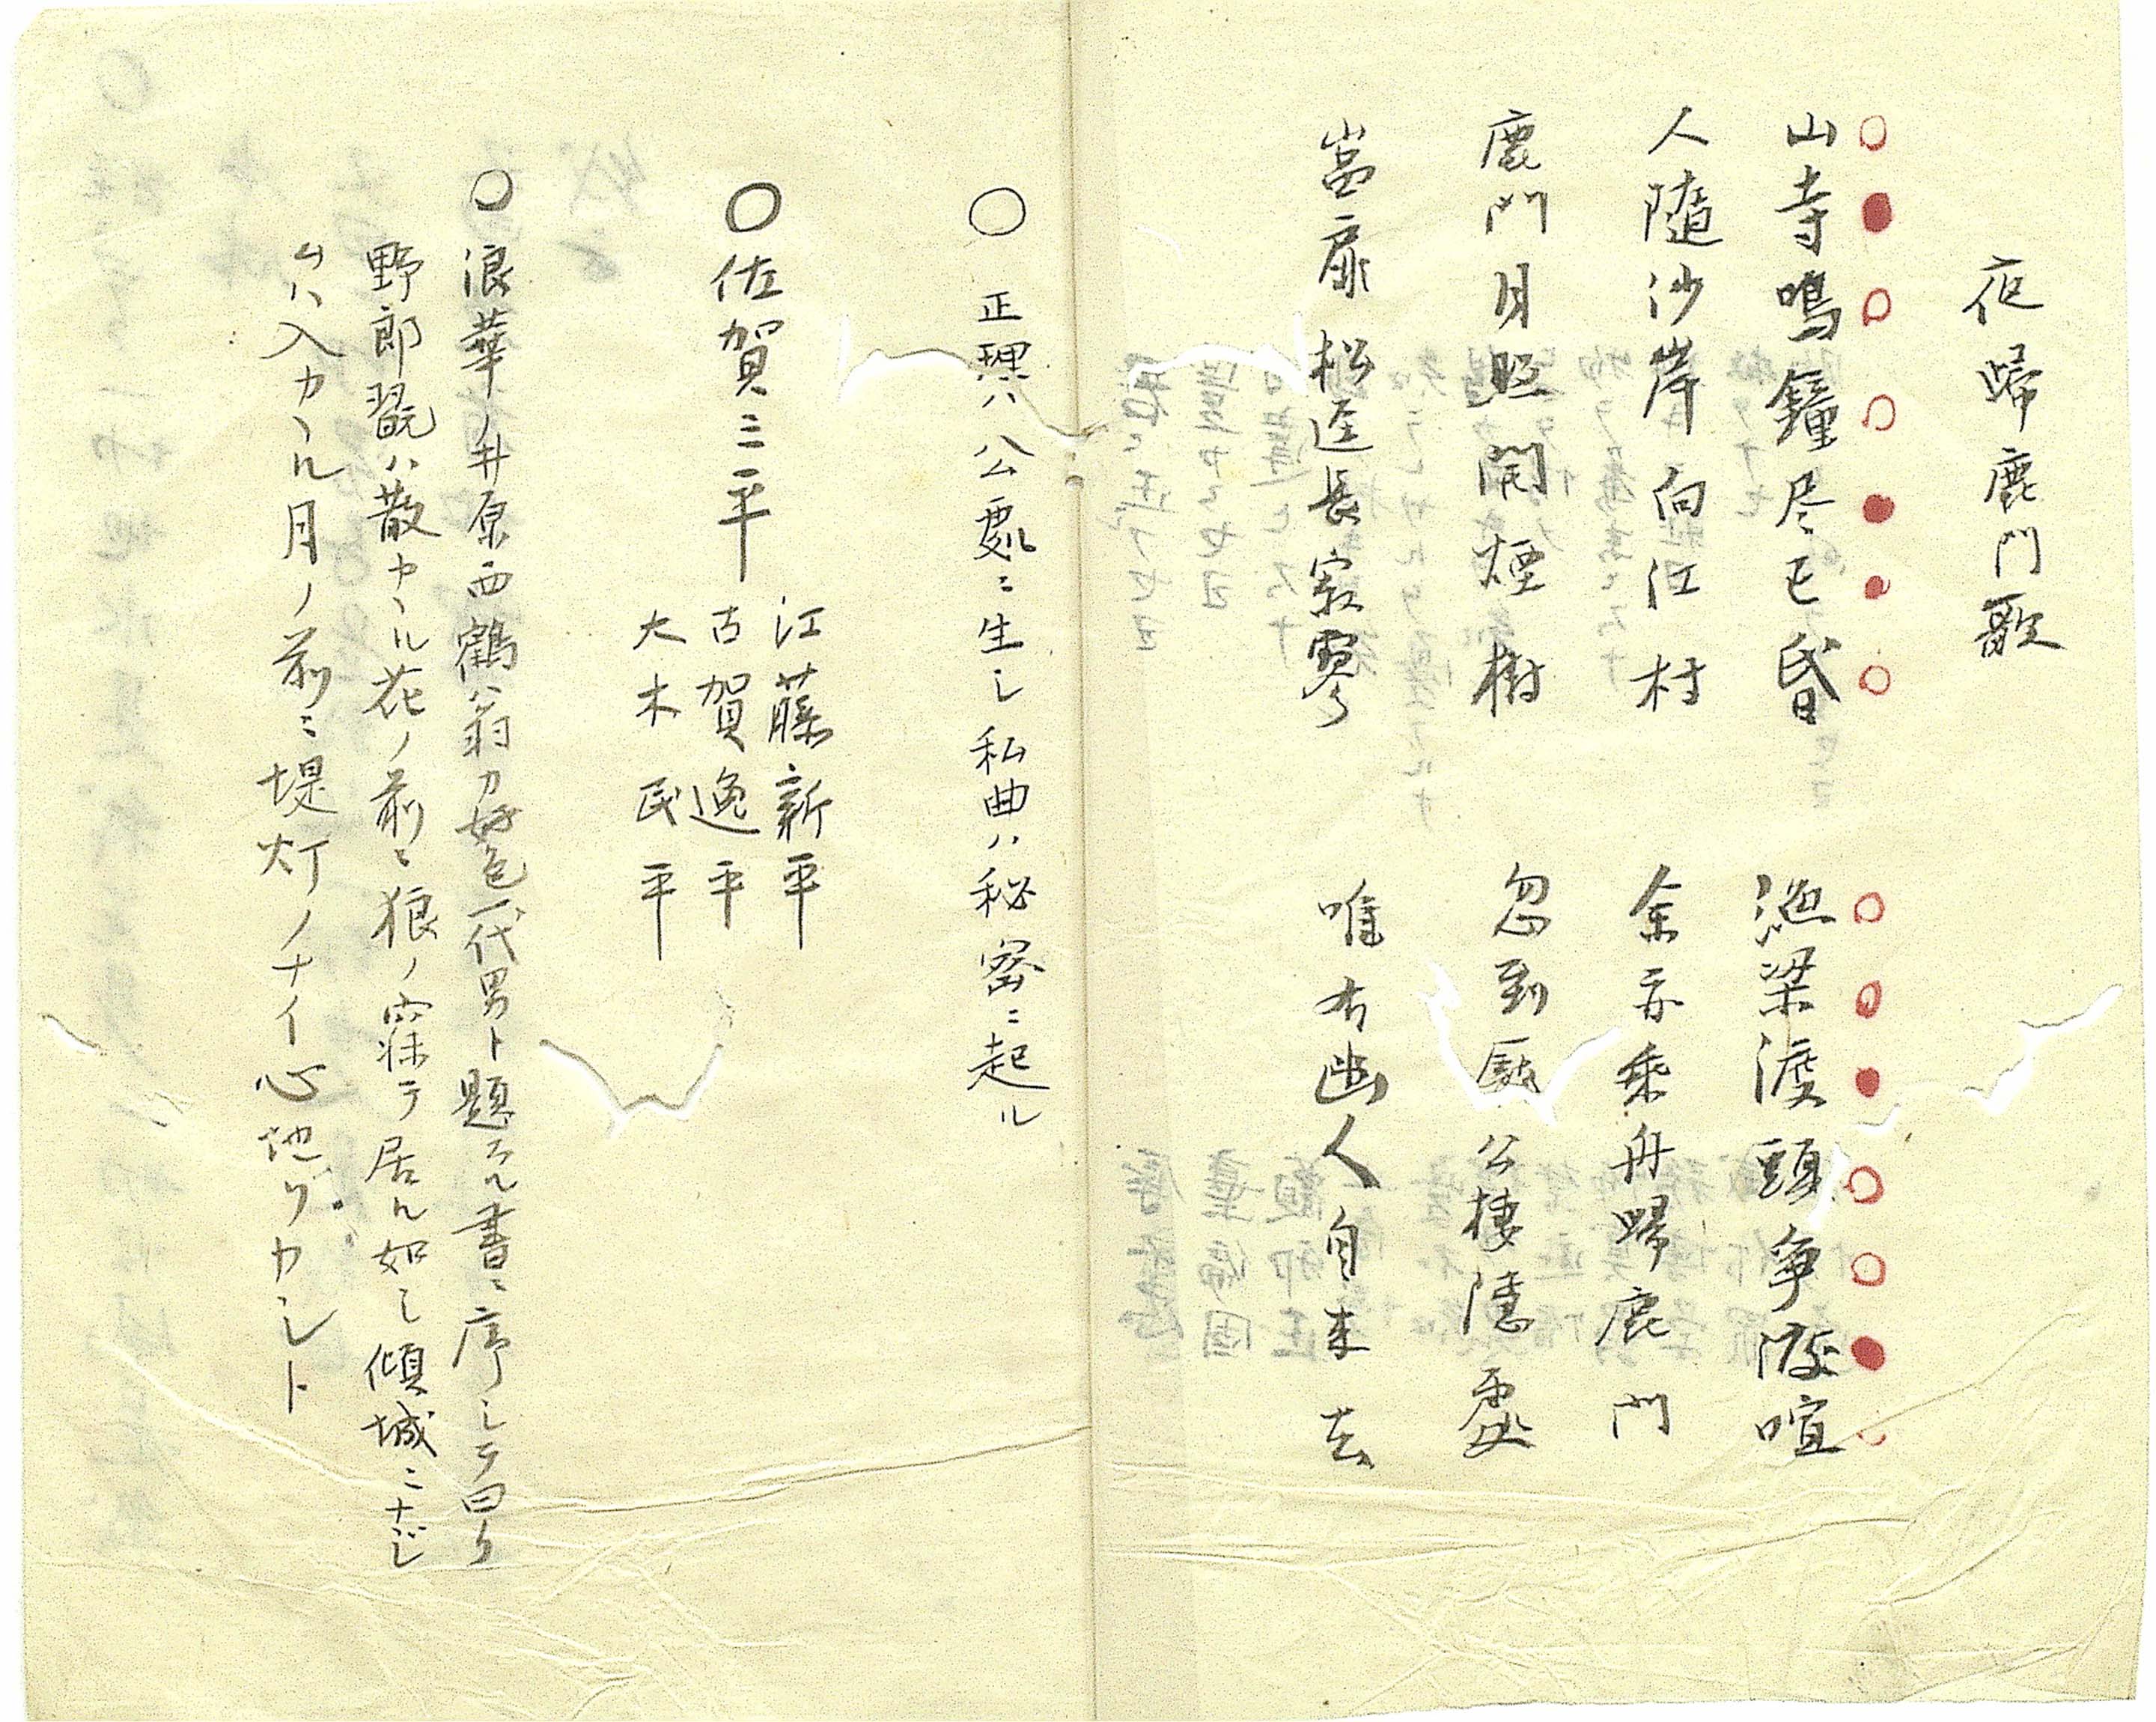 夜歸鹿門歌
山寺鳴鐘尽已昏 漁梁渡頭争渡喧
人隨沙岸向江村 余亦乗舟歸鹿門
鹿門月照開煙樹 忽到厖公棲隠處
嵓扉松逕長寂寥 唯有幽人自来去
〇 正理ハ公處ニ生シ私曲ハ秘密ニ起ル
〇佐賀三平
江藤新平
古賀逸平
大木民平
〇浪華ノ井原西鶴翁カ好色一代男ト題スル書ニ序シテ曰ク
野郎翫ハ散カヽル花ノ前ニ狼ノ寐テ居ル如シ傾城ニナジ
ムハ入カヽル月ノ前ニ堤灯ノナイ心地ゾカシト